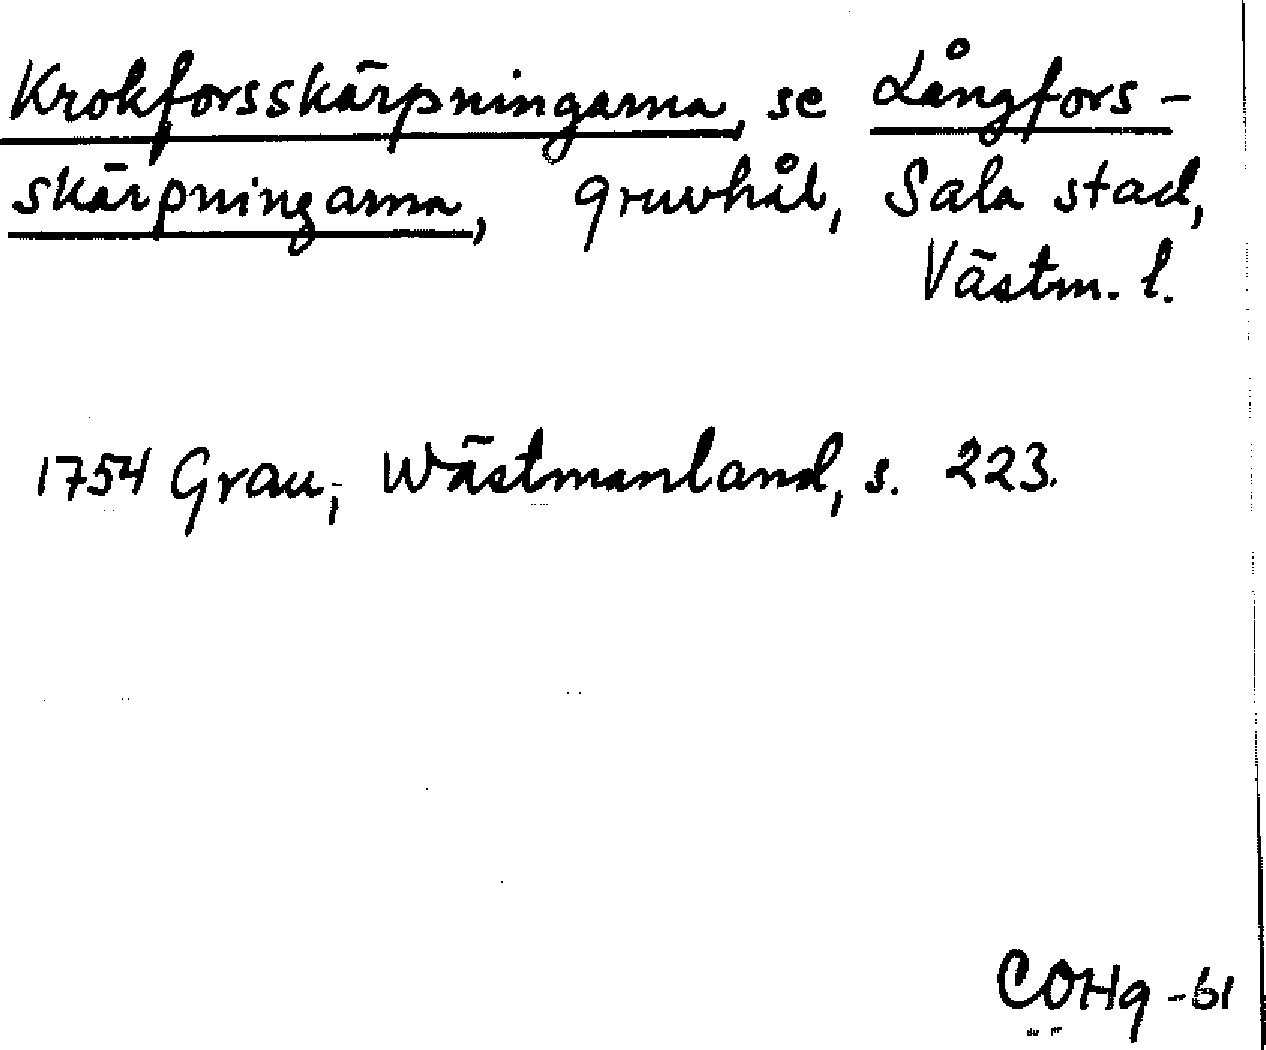 Krokforsskärpningarna, se Långfors-
skärpningarna, gruvhål, Sala stad,
Västm. l.
1754 Grau, Wästmanland, s. 223.
COHg -61